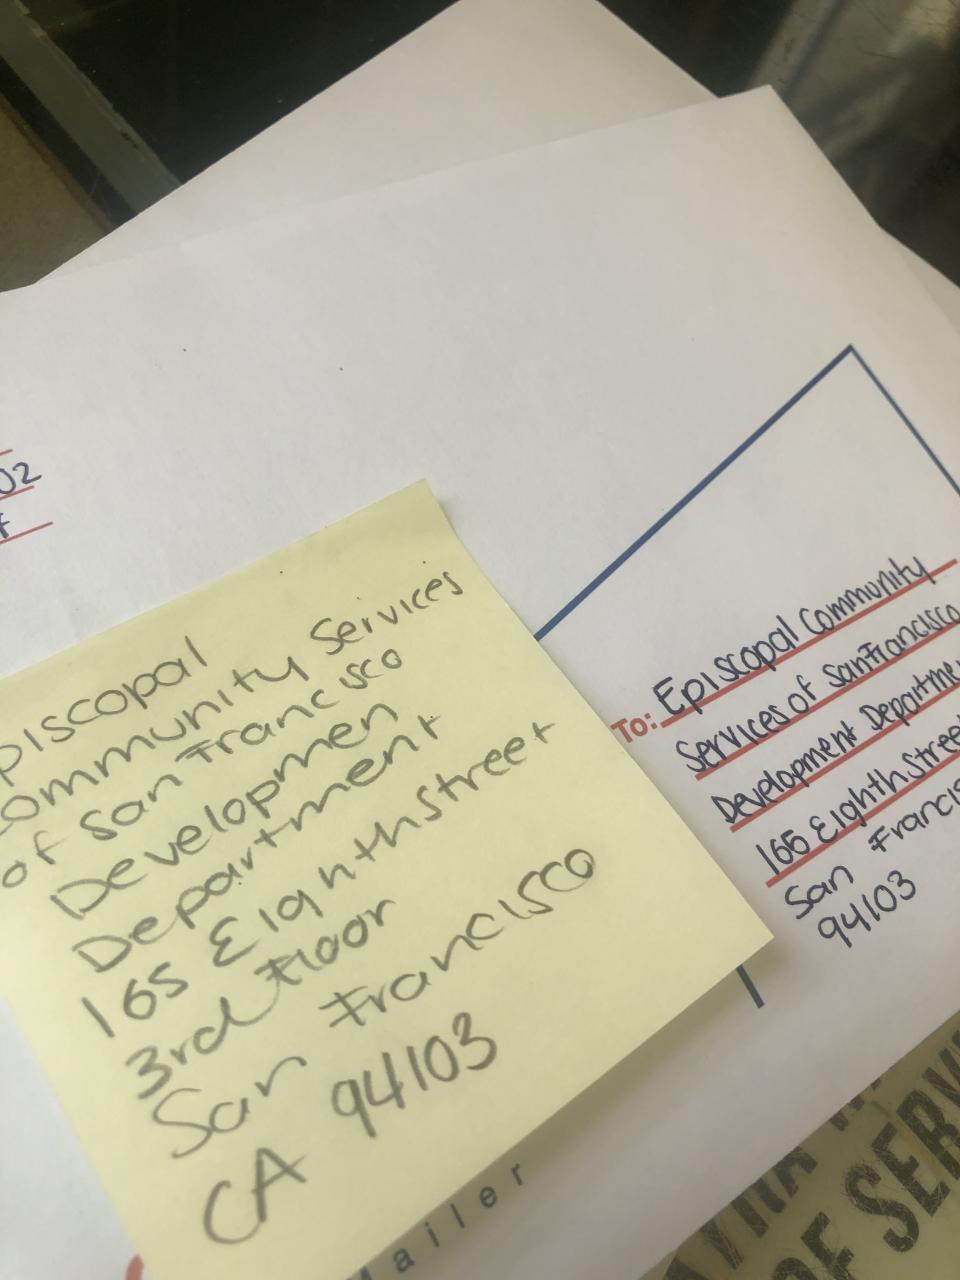 02
Episcopal
Community Services
of San Francisco
Developmen
Department
165 Eighth Street
3rd Floor
San Francisco
CA 94103
To: Episcopal Community
Services of San Francisco
Development Departme
165 Eighth Street
San Francis
94103
ailer
OF SERV